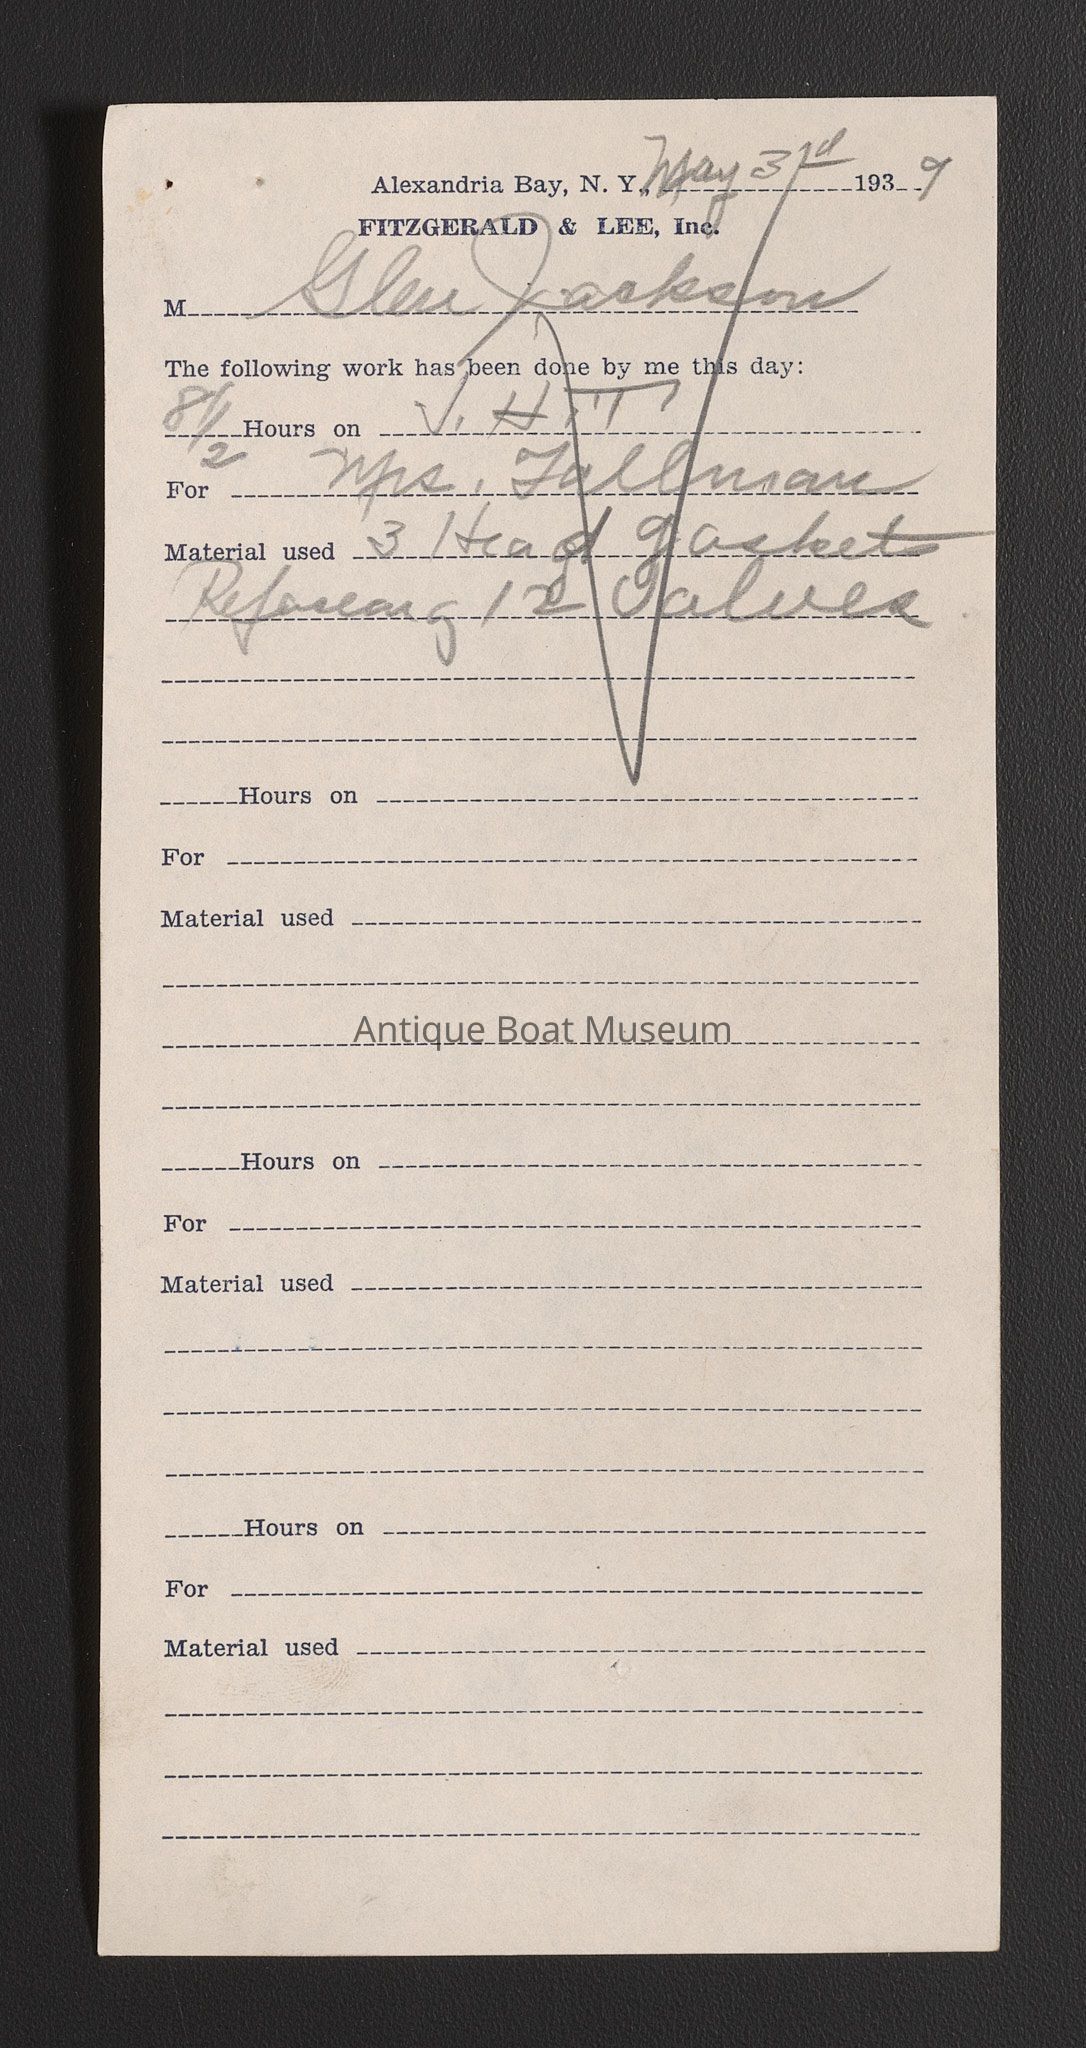 Alexandria Bay, N. Y., May 3rd 1939
FITZGERALD & LEE, Inc.
M Glen Jackson
The following work has been done by me this day:
8 1/2 Hours on J. H. T.
For Mrs. Tallman
Material used 3 Head gaskets
Refaceing 12 Valves
Hours on
For
Material used
Antique Boat Museum
Hours on
For
Material used
Hours on
For
Material used